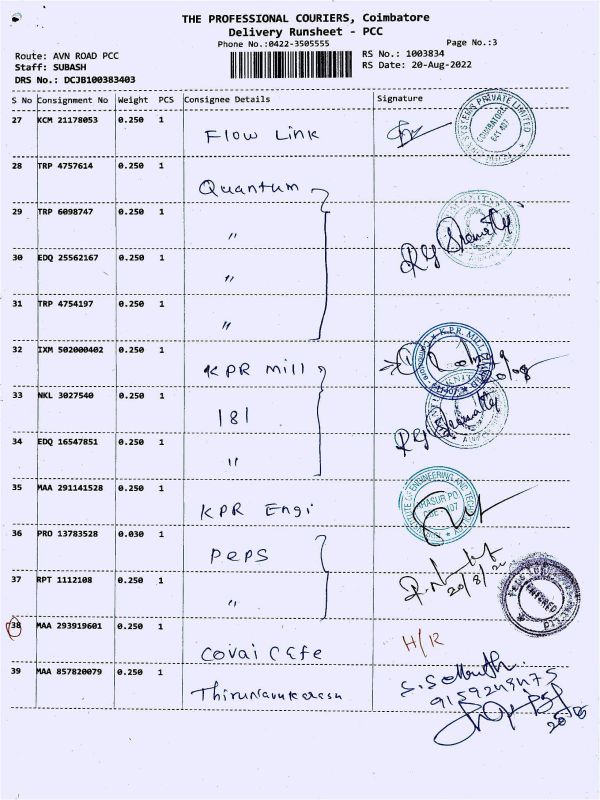 THE PROFESSIONAL COURIERS, Coimbatore
Delivery Runsheet - PCC
Phone No.:0422-3505555
Page No.:3
Route: AVN ROAD PCC
RS No.: 1003834
Staff: SUBASH
RS Date: 20-Aug-2022
DRS No.: DCJB100383403
S No Consignment No Weight PCS Consignee Details Signature
27 KCM 21178053 0.250 1
Flow Link
28 TRP 4757614 0.250 1
Quantum
29 TRP 6098747 0.250 1
"
30 EDQ 25562167 0.250 1
"
31 TRP 4754197 0.250 1
"
32 IXM 502000402 0.250 1
KPR mill
33 NKL 3027540 0.250 1
181
34 EDQ 16547851 0.250 1
"
35 MAA 291141528 0.250 1
KPR Engi
36 PRO 13783528 0.030 1
Peps
20/8/22
37 RPT 1112108 0.250 1
"
ENTERED
38 MAA 293919601 0.250 1
Covai Cafe H/R
39 MAA 857820079 0.250 1